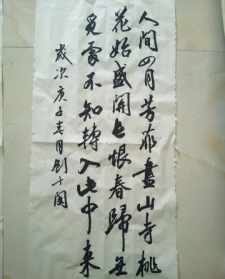 人间四月芳菲盡山寺桃
花始盛開長恨春歸無
覓處不知轉入此中来
歲次庚子春月创十阅